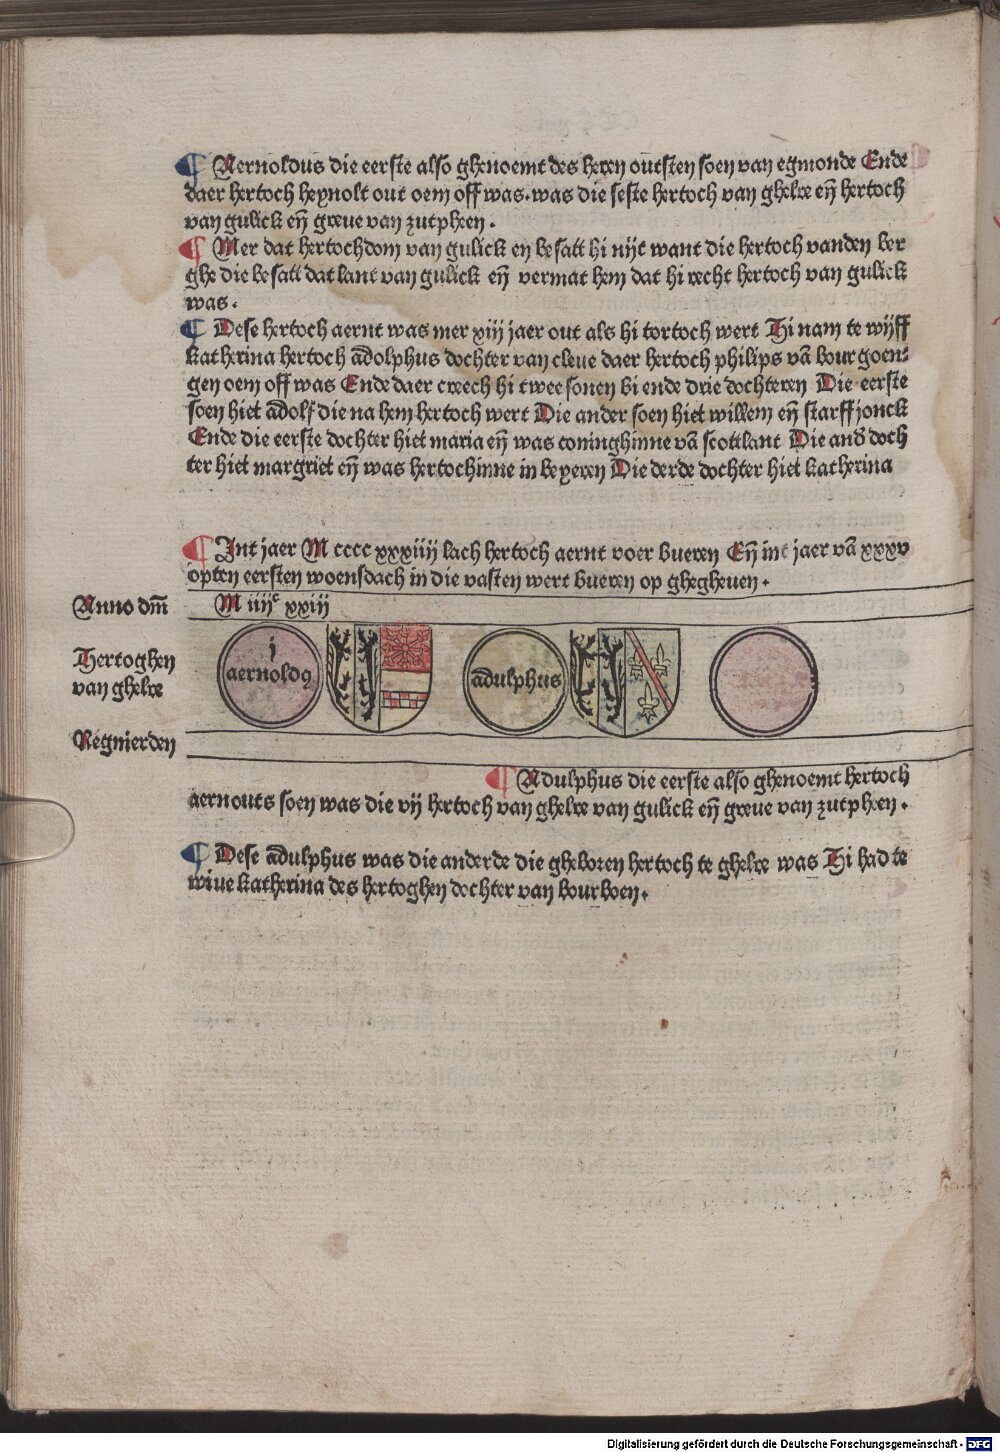 ¶ Aernoldus die eerste also ghenoemt des heren outsten soen van egmonde Ende
daer hertoch reynolt out oem off was. was die seste hertoch van ghelre eñ hertoch
van gulick eñ greue van zutpheen.
¶ Mer dat hertochdom van gulick en besatt hi nijt want die hertoch vanden ber
ghe die besatt dat lant van gulick eñ vermat hem dat hi recht hertoch van gulick
was.
¶ Dese hertoch aernt was mer xiij jaer out als hi tortoch wert Hi nam te wijff
katherina hertoch adolphus dochter van cleue daer hertoch philips vā bourgoen⸗
gen oem off was Ende daer creech hi twee sonen bi ende drie dochteren Die eerste
soen hiet adolf die na hem hertoch wert Die ander soen hiet willem eñ starff jonck
Ende die eerste dochter hiet maria eñ was coninghinne vā scotlant Die and̄ doch
ter hiet margriet eñ was hertochinne in beyeren Die derde dochter hiet katherina
¶ Int jaer M cccc xxxiiij lach hertoch aernt voer bueren Eñ int jaer vā xxxv
opten eersten woensdach in die vasten wert bueren op ghegheuen.
Anno dm̄ M iiijᶜ xxiij
Hertoghen
van ghelre
j
aernoldꝰ
adulphus
Regnierden
¶ Adulphus die eerste also ghenoemt hertoch
aernouts soen was die vij hertoch van ghelre van gulick eñ greue van zutpheen.
¶ Dese adulphus was die anderde die gheboren hertoch te ghelre was Hi had te
wiue katherina des hertoghen dochter van bourboen.
Digitalisierung gefördert durch die Deutsche Forschungsgemeinschaft - DFG